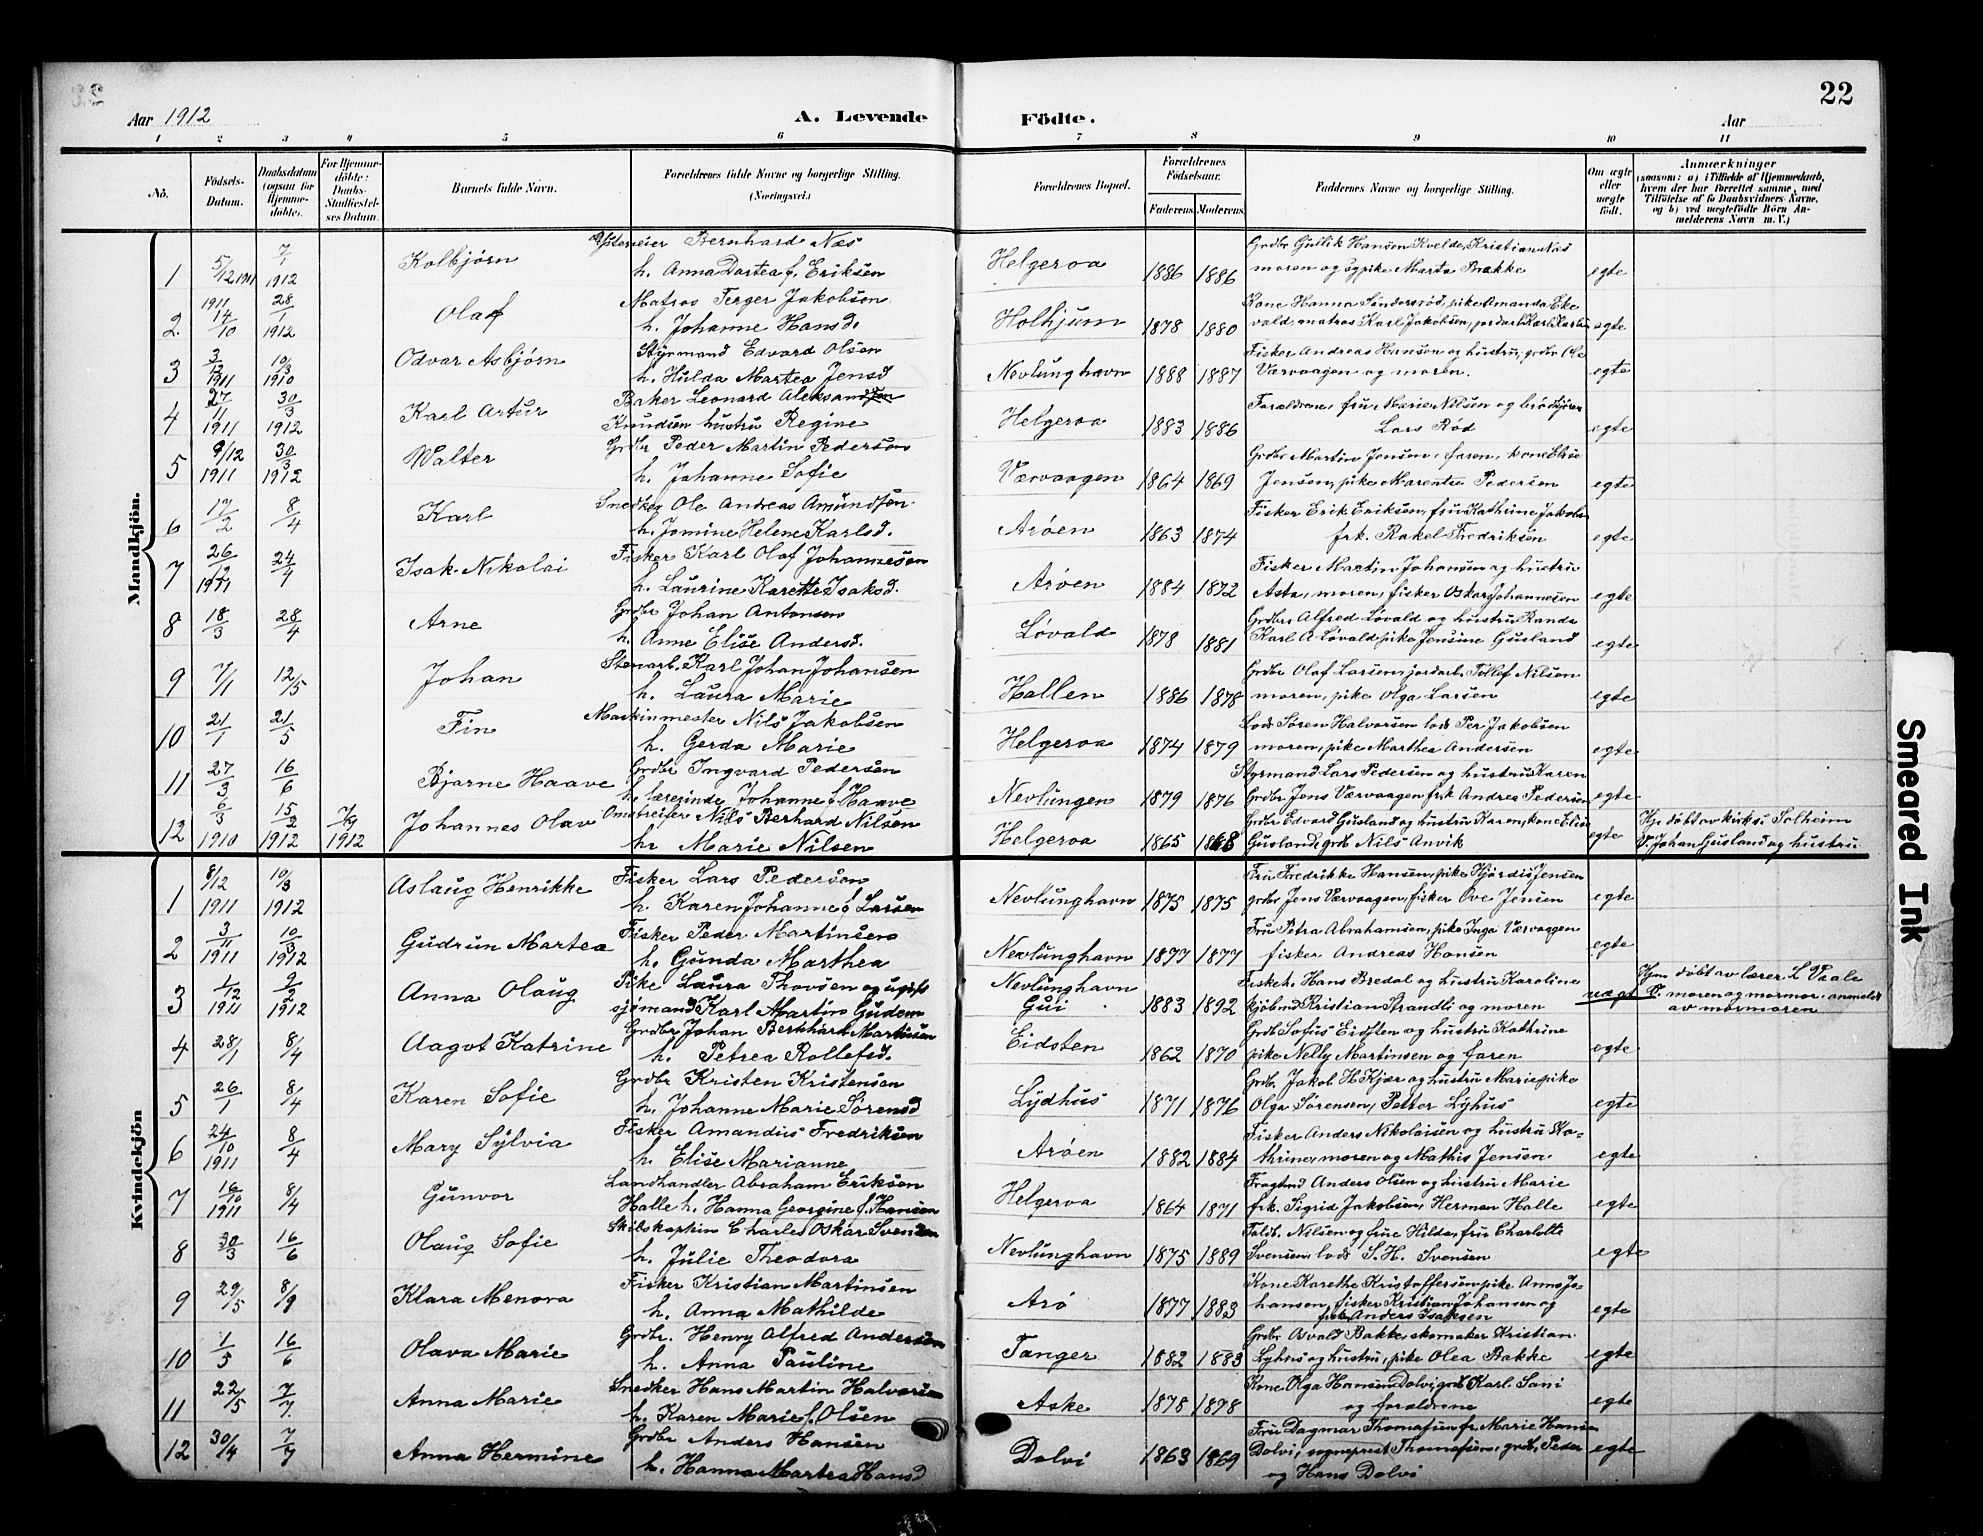 22
Aar 1912
A. Levende Födte.
Aar
1 2 3 4 5 6 7 8 9 10 11
No.
Födsels-Datum.
Daabsdatum (ogsaa for Hjemmedöbte).
For Hjemmedöbte: Daabs-Stadfæstelses Datum.
Barnets fulde Navn.
Forældrenes fulde Navne og borgerlige Stilling. (Næringsvei.)
Forældrenes Bopæl.
Forældrenes Fødselsaar.
Faderens. Moderens.
Faddernes Navne og borgerlige Stilling.
Om ægte eller uægte födt.
Anmærkninger (saasom: a) i Tilfælde af Hjemmedaab, hvem der har forrettet samme, med Tilföielse af to Daabsvidners Navne, og b) ved uægtefödte Börn Anmelderens Navn m. V.)
Mandkjön.
1 5/12 1911 7/1 1912 Kolbjørn Bernhard Næs Helgeroa 1886 1886 Grdbr Gullik Hansen Kvelde, Kristian Næs egte
h. Anna Dortea f. Eriksen moren og pike Marta Bakke
2 1911 14/10 28/1 1912 Olaf Matros Terger Jakobsen Holhjum 1878 1880 Kone Hanna Søndersrød, pike Amanda Eke egte
h. Johanne Hansd. vald, matros Karl Jakobsen,
3 3/12 1911 10/3 1910 Odvar Asbjørn Styrmand Edvard Olsen Nevlunghavn 1888 1887 Fisker Andreas Hansen og hustru, grdbr Ole egte
h. Hulda Martea Jensd Værvaagen og moren.
4 27/11 1911 30/3 1912 Karl Artur Baker Leonard Aleksandsen Helgeroa 1883 1886 Forældrene, fru Marie Nilsen og egte
Knudsen hustru Regine Lars Rød
5 9/12 1911 30/3 1912 Walter Grdbr Peder Martin Pederson Værvaagen 1864 1869 Grdbr Martin Jensen, faren, kone Elise egte
h. Johanne Sofie Jensen, pike Marentse Pedersen
6 17/2 8/4 Karl Snedker Ole Andreas Amundsen Arøen 1863 1874 Fisker Erik Eriksen, fru Kathrine Jakobs egte
h. Jomine Helene Karlsd. frk. Rakel Fredriksen
7 26/12 1911 24/4 Isak Nikolai Fisker Karl Olaf Johannesen Arøen 1884 1872 Fisker Martin Johansen og hustru egte
h. Laurine Karette Isaksd. Asta, moren, fisker Oskar Johannesen
8 18/3 28/4 Arne Grdbr Johan Antonsen Løvald 1878 1881 Grdbr Alfred Løvald og hustru Randa egte
h. Anne Elise Andersd. Karl A Løvald, pike Jensine Gusland
9 7/1 12/5 Johan Stenarb. Karl Johan Johansen Hallen 1886 1878 Grdbr Olaf Larsen, jordarb. Tollef Nilsen egte
h. Laura Marie moren, pike Olga Larsen
10 21/1 21/5 Fin Maskinmester Nils Jakobsen Helgeroa 1874 1879 Lods Søren Halvorsen lods Per Jakobsen egte
h. Gerda Marie moren, pike Marthea Andersen
11 27/3 16/6 Bjarne Haave Grdbr Ingvard Pedersen Nevlungen 1879 1876 Styrmand Lars Pedersen og hustru Karen egte
h. lærerinde Johanne f Haave Grdbr Jens Værvaagen frk Andrea Pedersen
12 6/3 1910 15/2 1912 7/4 1912 Johannes Olav Omstreifer Nils Berhard Nilsen Helgeroa 1865 1868 Grdbr Edvard Gusland og hustru Karen, kone Elise egte Hj. døbt av kirks. Solheim
h. Marie Nilsen Gusland, grdb Nils Anvik V. Johan Gusland og hustru
Kvindekjön
1 8/12 1911 10/3 1912 Aslaug Henrikke Fisker Lars Pederson Nevlunghavn 1875 1875 Fru Fredrikke Hansen, pike Hjørdis Jensen egte
h. Karen Johanne f Larsen grdbr Jens Værvaagen, fisker Ove Jensen
2 3/11 1911 10/3 1912 Gudrun Martea Fisker Peder Martinsen Nevlunghavn 1877 1877 Fru Petra Abrahamsen, pike Inga Værvaagen egte
h. Gunda Marthea fisker Andreas Hansen
3 1/12 1911 9/2 1912 Anna Olaug Pike Laura Thovsen og ugift Nevlunghavn 1883 1892 Fiskeh. Hans Bredal og hustru Karoline uægt Hjm døbt av lærer L Vaale
sjømand Karl Martin Gudem Gui kjøbmd Kristian Strandli og moren V. moren og mormor, anmeldt
av mormoren
4 28/1 8/4 Aagot Katrine Grdbr Johan Bernhard Martinsen Eidsten 1862 1870 Grdb Sofus Eidsten og hustru Kathrine egte
h. Petrea Rollefsd. pike Nelly Martinsen og faren
5 26/1 8/4 Karen Sofie Grdbr Kristen Kristensen Lydhus 1871 1876 Grdb. Jakob H Kjær og hustru Marie, pike egte
h. Johanne Marie Sørensd Olga Sørensen, Petter Lyhus
6 24/10 1911 8/4 Mary Sylvia Fisker Amandus Fredriksen Arøen 1882 1884 Fisker Anders Nikolaisen og hustru Ka- egte
h. Elise Marianne thrine, moren og Mathis Jensen.
7 16/10 1911 8/4 Gunvor Landhandler Abraham Eriksen Helgeroa 1864 1871 Anders Olsen og hustru Marie egte
Halle h. Hanna Georgine f. Hansen frk. Sigrid Jakobsen, Herman Halle
8 30/3 16/6 Olaug Sofie Skibskaptin Charles Oskar Svendsen Nevlunghavn 1875 1889 Toldb. Nilsen og frue Hilda, fru Charlotte egte
h. Julie Theodora Svensen, lods S. H. Svensen
9 29/5 8/9 Klara Menora Fisker Kristian Martinsen Arø 1877 1883 Kone Karethe Kristoffersen, pike Anna Jo- egte
h. Anna Mathilde hansen, fisker Kristian Johansen og
fisker Anders Isaksen
10 1/5 16/6 Olava Marie Grdbr. Henry Alfred Anderson Tanger 1882 1883 Grdbr Osvald Bakke, skomaker Kristian egte
h. Anna Pauline Lyhus og hustru, pike Olea Bakke
11 22/5 7/7. Anna Marie Snedker Hans Martin Halvorsen Aske 1878 1878 Kone Olga Hansen Dolvi, grdb Karl Sani egte
h. Karen Marie f. Olsen og forældrene
12 30/4 7/7 Anna Hermine Grdbr Anders Hansen Dolvi 1863 1869 Fru Dagmar Thomassen fr. Marie Hansen egte
h. Hanna Martea Hansd Dolvi, sogneprest Thomassen, grdb, Peder
og Hans Dolvi
Smeared Ink